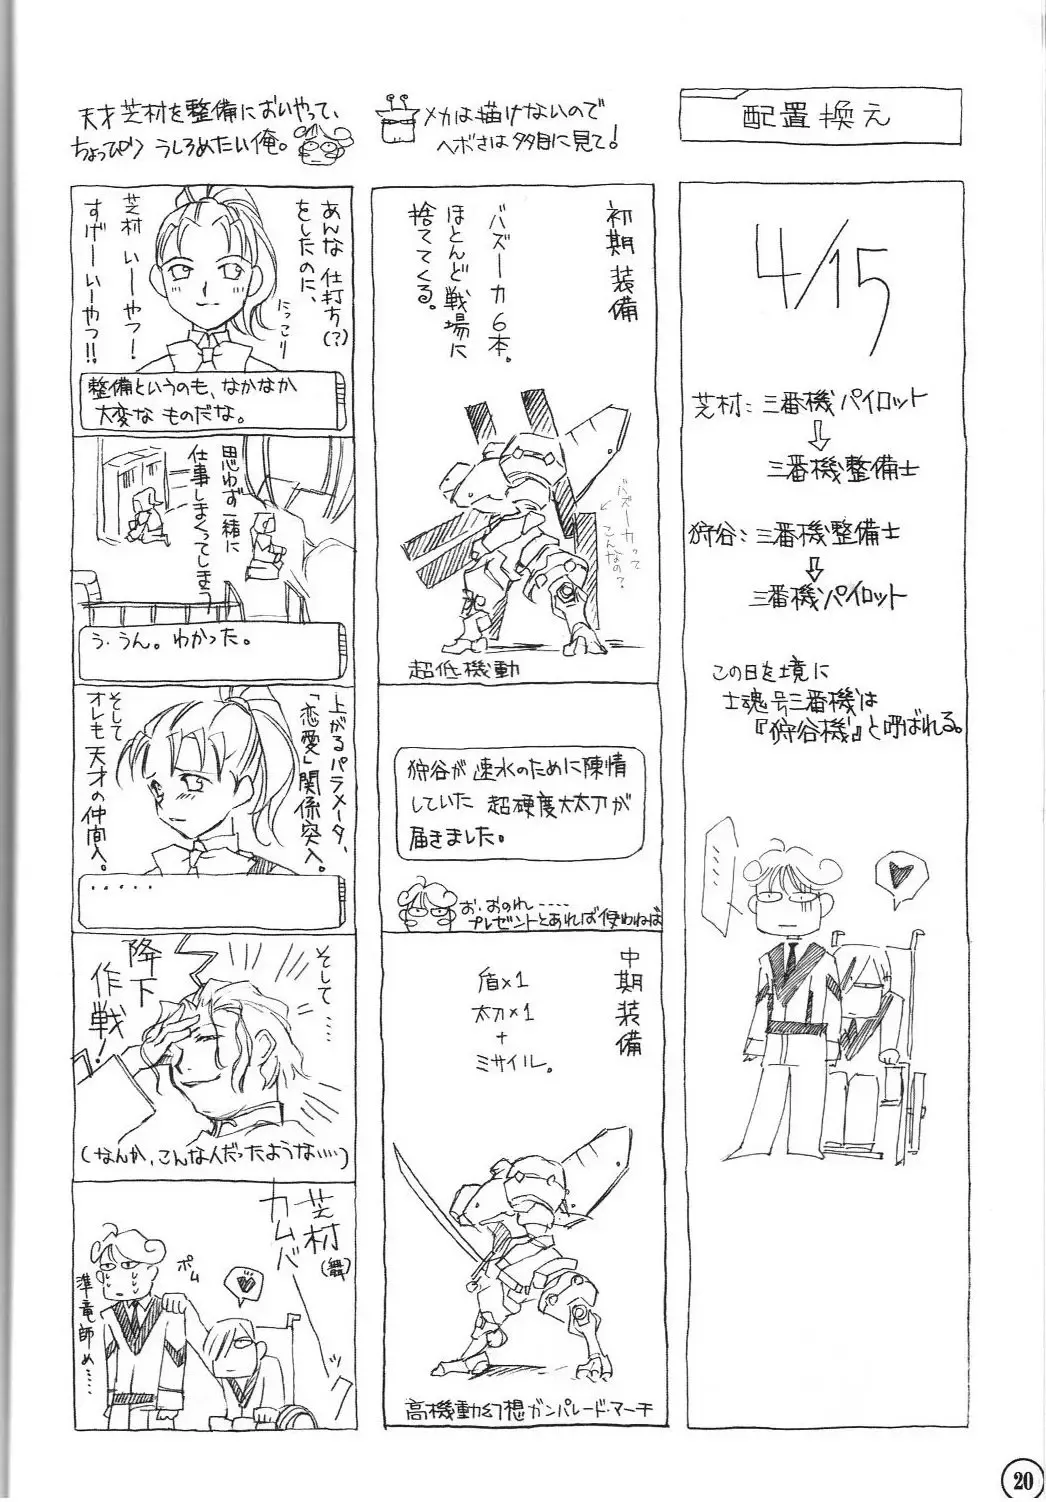 配置換え
4/15
芝村: 三番機パイロット
⇩
三番機整備士
狩谷: 三番機整備士
⇩
三番機パイロット
この日を境に
士魂号三番機は
『狩谷機』と呼ばれる。
‥‥‥
メカは描けないので
ヘボさは多目に見て!
初期装備
バズーカ6本。
ほとんど戦場に
捨ててくる。
バズーカって
こんなの?
超低機動
狩谷が速水のために陳情
していた 超硬度大太刀が
届きました。
お、おのれ‥‥
プレゼントとあれば使わねば
中期装備
盾×1
太刀×1
+
ミサイル。
高機動幻想ガンパレード・マーチ
天才芝村を整備においやって、
ちょっぴり うしろめたい俺。
あんな仕打ち(?)
をしたのに、
芝村 いーやつ!
すげーいーやつ!!
にっこり
整備というのも、なかなか
大変な ものだな。
思わず一緒に
仕事しまくってしまう
う、うん。わかった。
上がるパラメータ、
「恋愛」関係突入。
そして
オレも天才の仲間入。
‥‥‥
そして‥‥
降下
作戦!
(なんか、こんな人だったような‥‥)
芝村(舞)
カムバ
ーッ
ポム
準竜師め‥‥
20